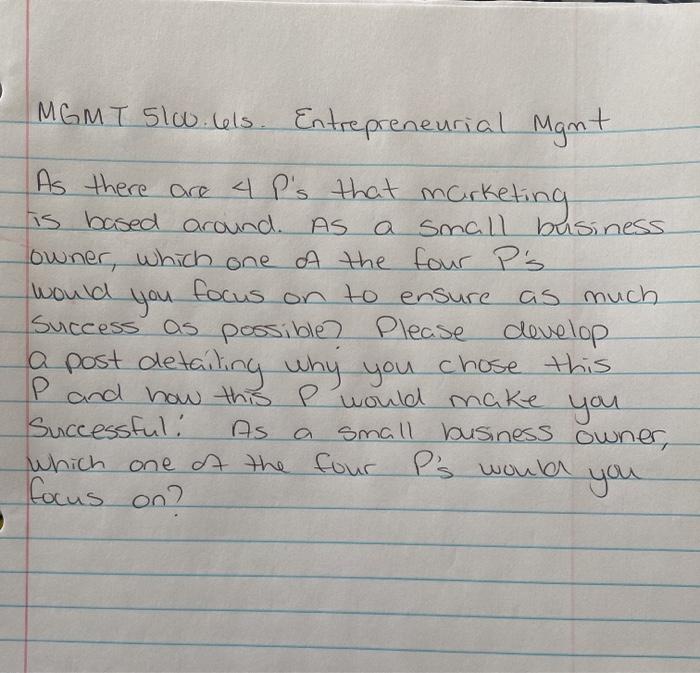 MGMT 5100.61s. Entrepreneurial Mgmt
As there are 4 P's that marketing
is based around. As a small business
owner, which one of the four P's
would you focus on to ensure as much
success as possible? Please develop
a post detailing why you chose this
P and how this P would make you
successful: As a small business owner,
which one of the four P's would you
focus on?